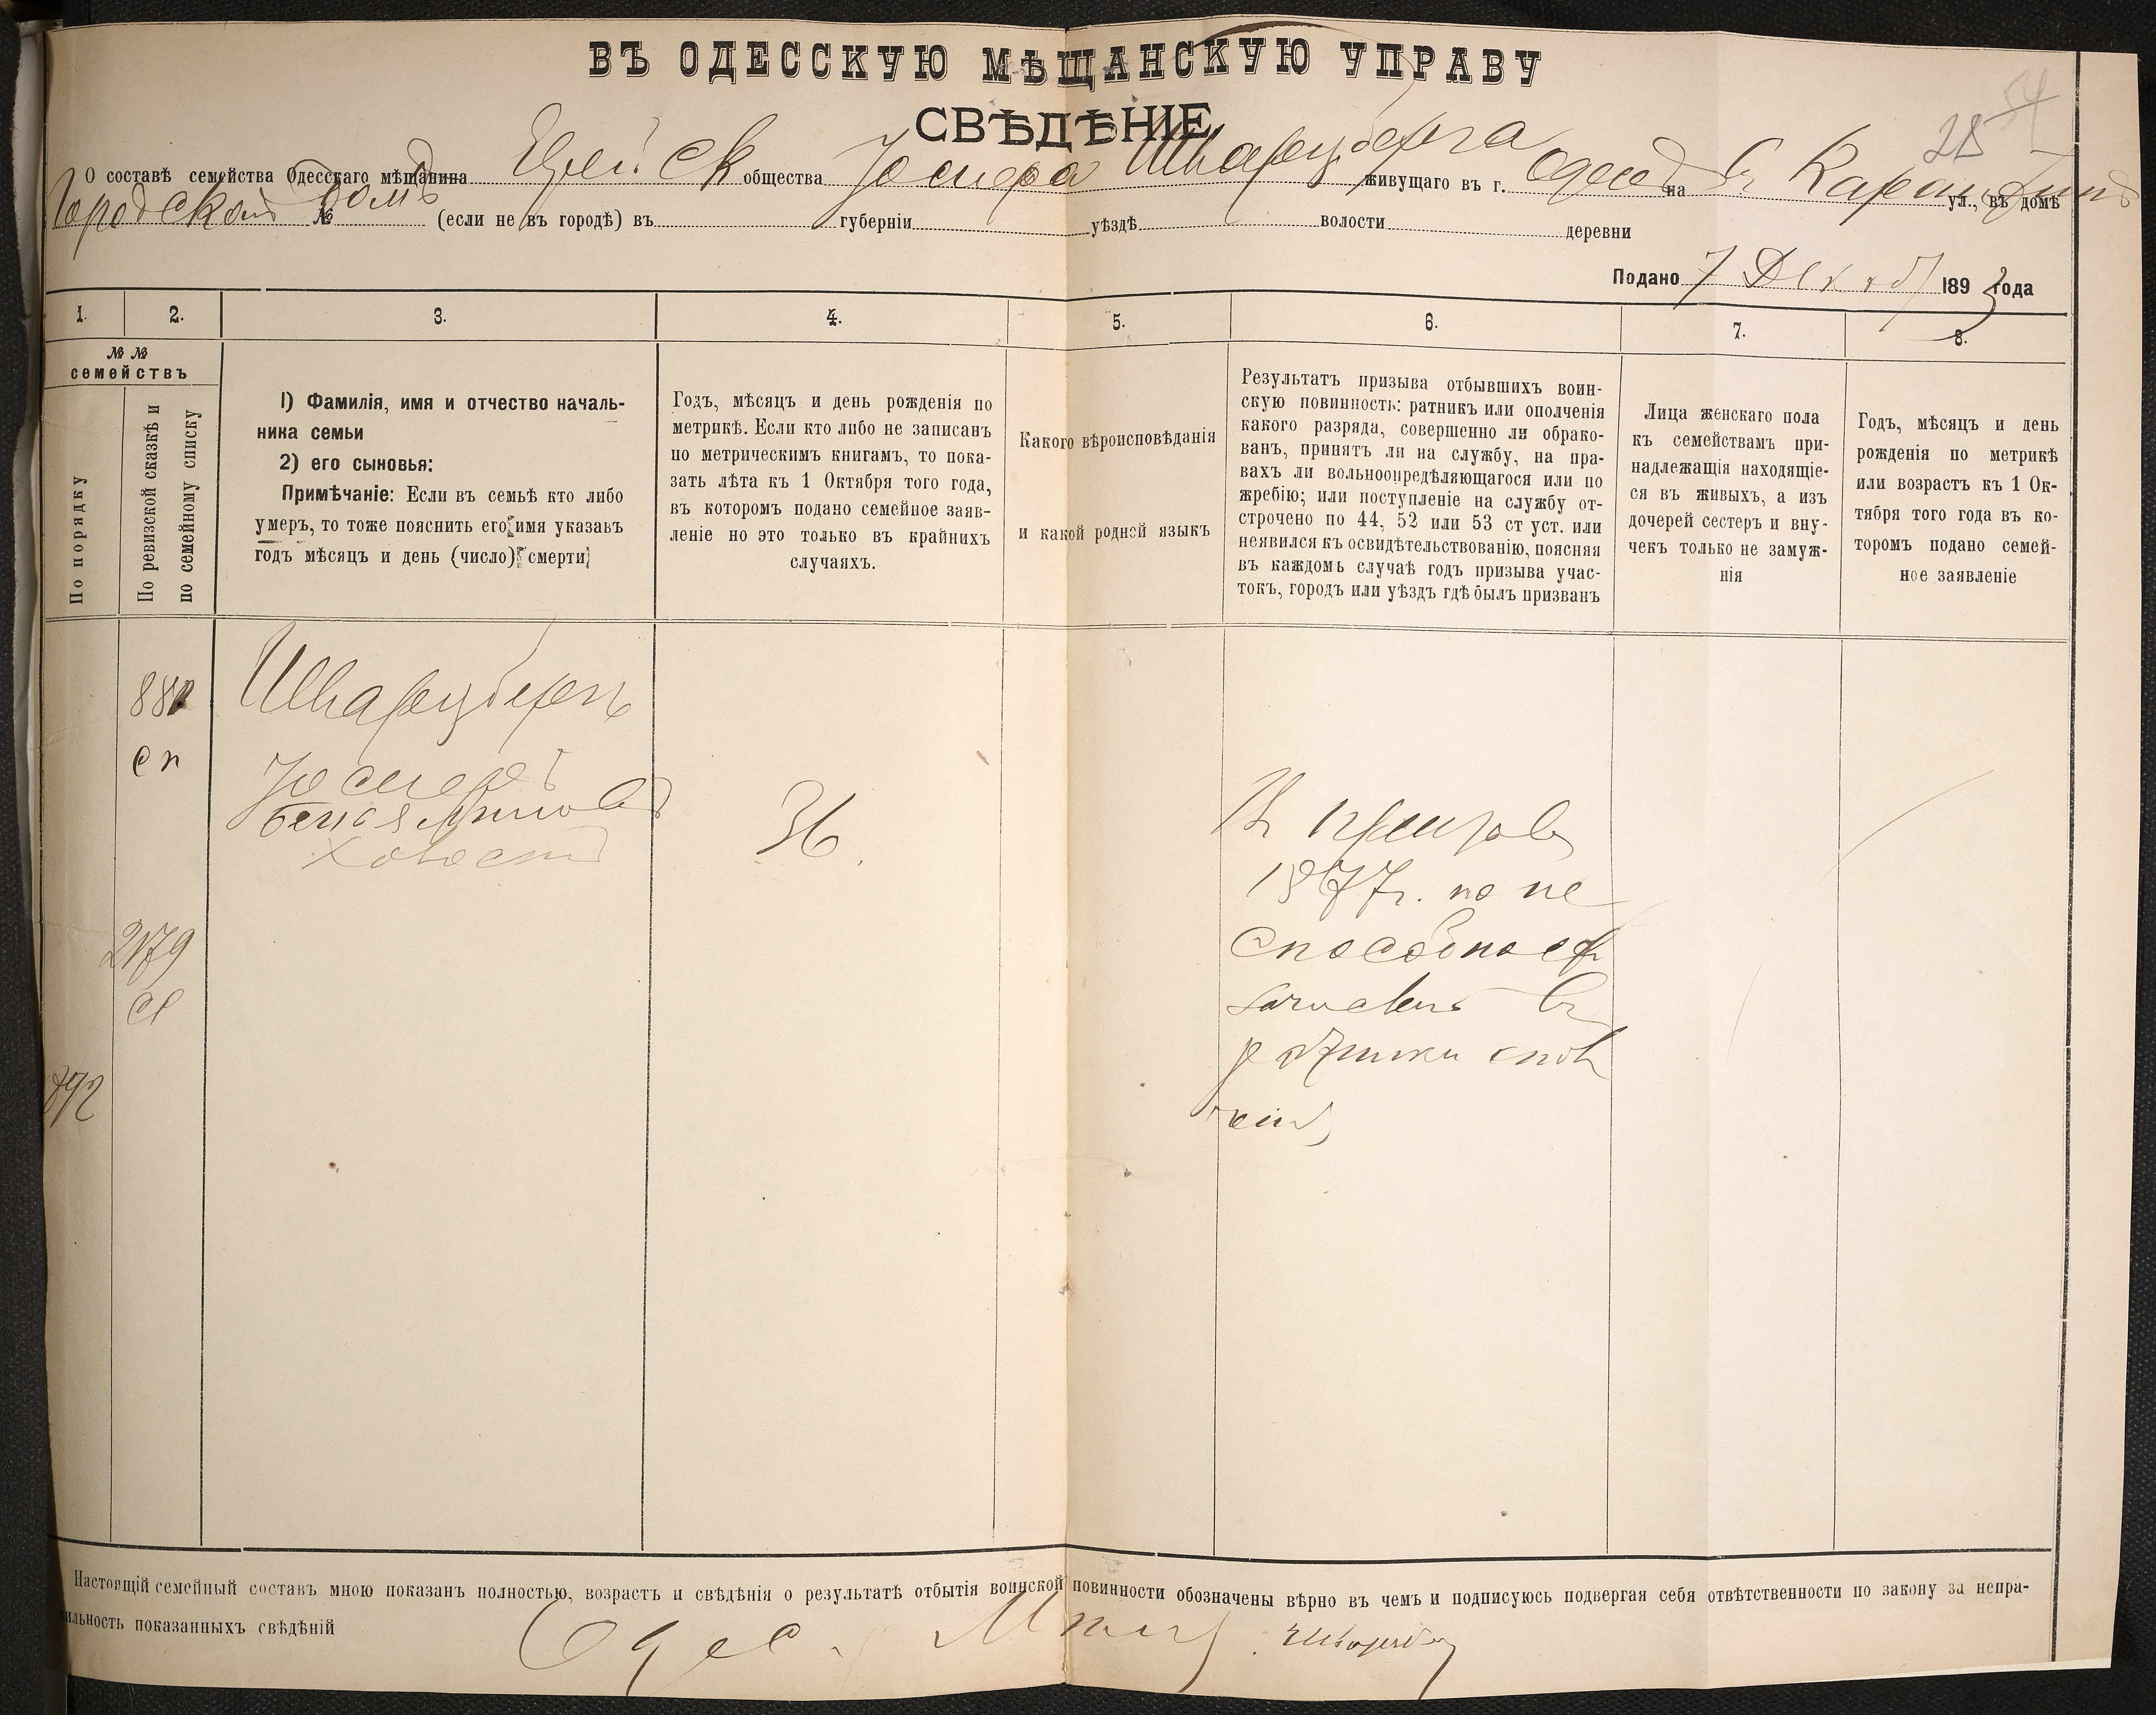 ВЪ ОДЕССКУЮ МѢЩАНСКУЮ УПРАВУ
СВѢДѢНІЕ
28 54
О составѣ семейства Одесскаго мѣщанина Еврейск общества Іосифа Шварцберга живущаго въ г. Одессѣ на ул., въ домѣ
Городскомъ домѣ № (если не въ городѣ) въ губерніи уѣздѣ волости деревни
Подано 7 Декаб 1893 года
1. 2. 3. 4. 5. 6. 7. 8.
№ №
семействъ
По порядку
По ревизской сказкѣ и
по семейному списку
1) Фамилія, имя и отчество началь-
ника семьи
2) его сыновья:
Примѣчаніе: Если въ семьѣ кто либо
умеръ, то тоже пояснить его имя указавъ
годъ мѣсяцъ и день (число) смерти
Годъ, мѣсяцъ и день рожденія по
метрикѣ. Если кто либо не записанъ
по метрическимъ книгамъ, то пока-
зать лѣта къ 1 Октября того года,
въ которомъ подано семейное заяв-
леніе но это только въ крайнихъ
случаяхъ.
Какого вѣроисповѣданія
и какой родной языкъ
Результатъ призыва отбывшихъ воин-
скую повинность: ратникъ или ополченія
какого разряда, совершенно ли обрако-
ванъ, принятъ ли на службу, на пра-
вахъ ли вольноопредѣляющагося или по
жребію; или поступленіе на службу от-
строчено по 44, 52 или 53 ст уст. или
неявился къ освидѣтельствованію, поясняя
въ каждомъ случаѣ годъ призыва учас-
токъ, городъ или уѣздъ гдѣ былъ призванъ
Лица женскаго пола
къ семействамъ при-
надлежащія находящіе-
ся въ живыхъ, а изъ
дочерей сестеръ и вну-
чекъ только не замуж-
нія
Годъ, мѣсяцъ и день
рожденія по метрикѣ
или возрастъ къ 1 Ок-
тября того года въ ко-
торомъ подано семей-
ное заявленіе
Шварцбергъ
сп
Іосифъ
холостъ
36
Въ призывъ
1877г. по не
способност
въ
ратники
2179
892
Настоящій семейный составъ мною показанъ полностью, возрастъ и свѣдѣнія о результатѣ отбытія воинской повинности обозначены вѣрно въ чемъ и подписуюсь подвергая себя отвѣтственности по закону за непра-
вильность показанныхъ свѣдѣній
Одес.